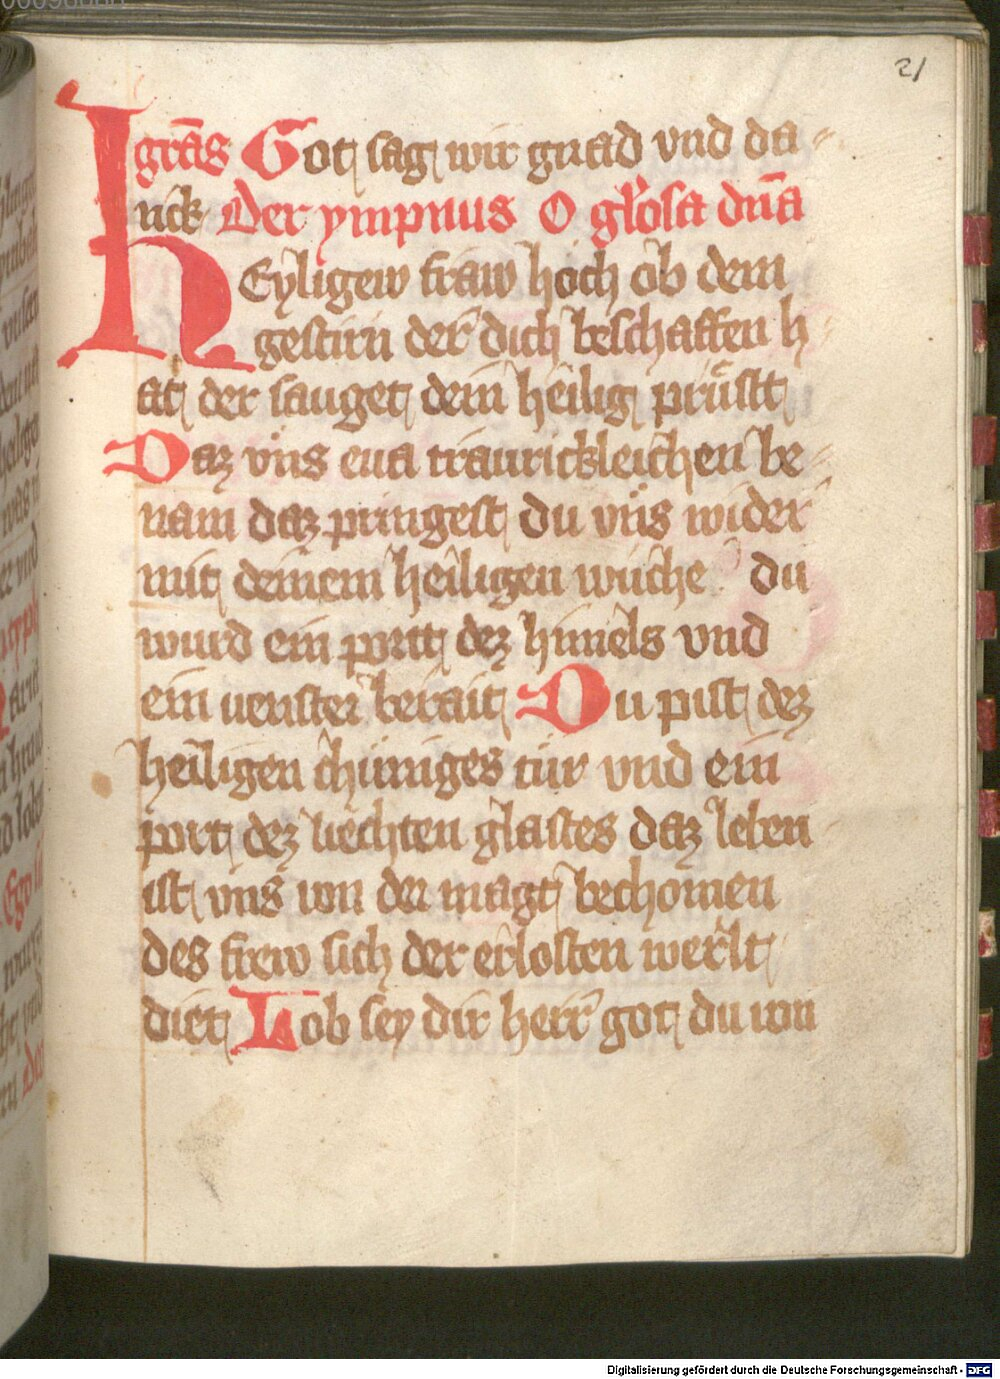 21
grās Got sag wir gnad vnd da-
nck Der ympnus O gl'osa dn̄a
HEyligew fraw hoch ob dem
gestirn der dich beschaffen h-
at der sauget dein heilig prüstt
Daz vns eua traurickleichen be-
nam daz pringest du vns wider
mit deinem heiligen wuche du
wurd ein portt dez himels vnd
ein uenster berait Du pist dez
heiligen chüniges tür vnd ein
port dez liechten glastes daz leben
ist vns von der magt bechomen
des frew sich der erlosten werlt
diet Lob sey dir herr got du von
Digitalisierung gefördert durch die Deutsche Forschungsgemeinschaft - DFG